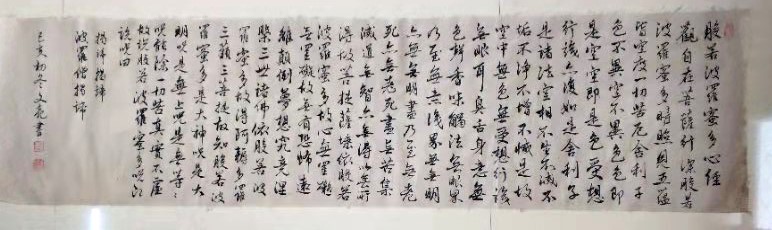 般若波羅蜜多心經
觀自在菩薩行深般若
波羅蜜多時照見五蘊
皆空度一切苦厄舍利子
色不異空空不異色色即
是空空即是色受想
行識亦復如是舍利子
是諸法空相不生不滅不
垢不淨不增不減是故
空中無色無受想行識
無眼耳鼻舌身意無
色聲香味觸法無眼界
乃至無意識界無無明
亦無無明盡乃至無老
死亦無老死盡無苦集
滅道無智亦無得以無所
得故菩提薩埵依般若
波羅蜜多故心無罣礙
無罣礙故無有恐怖遠
離顛倒夢想究竟涅
槃三世諸佛依般若波
羅蜜多故得阿耨多羅
三藐三菩提故知般若波
羅蜜多是大神咒是大
明咒是無上咒是無等々
咒能除一切苦真實不虛
故說般若波羅蜜多咒即
說咒曰
揭諦揭諦
波羅僧揭諦
己亥初冬文亮書